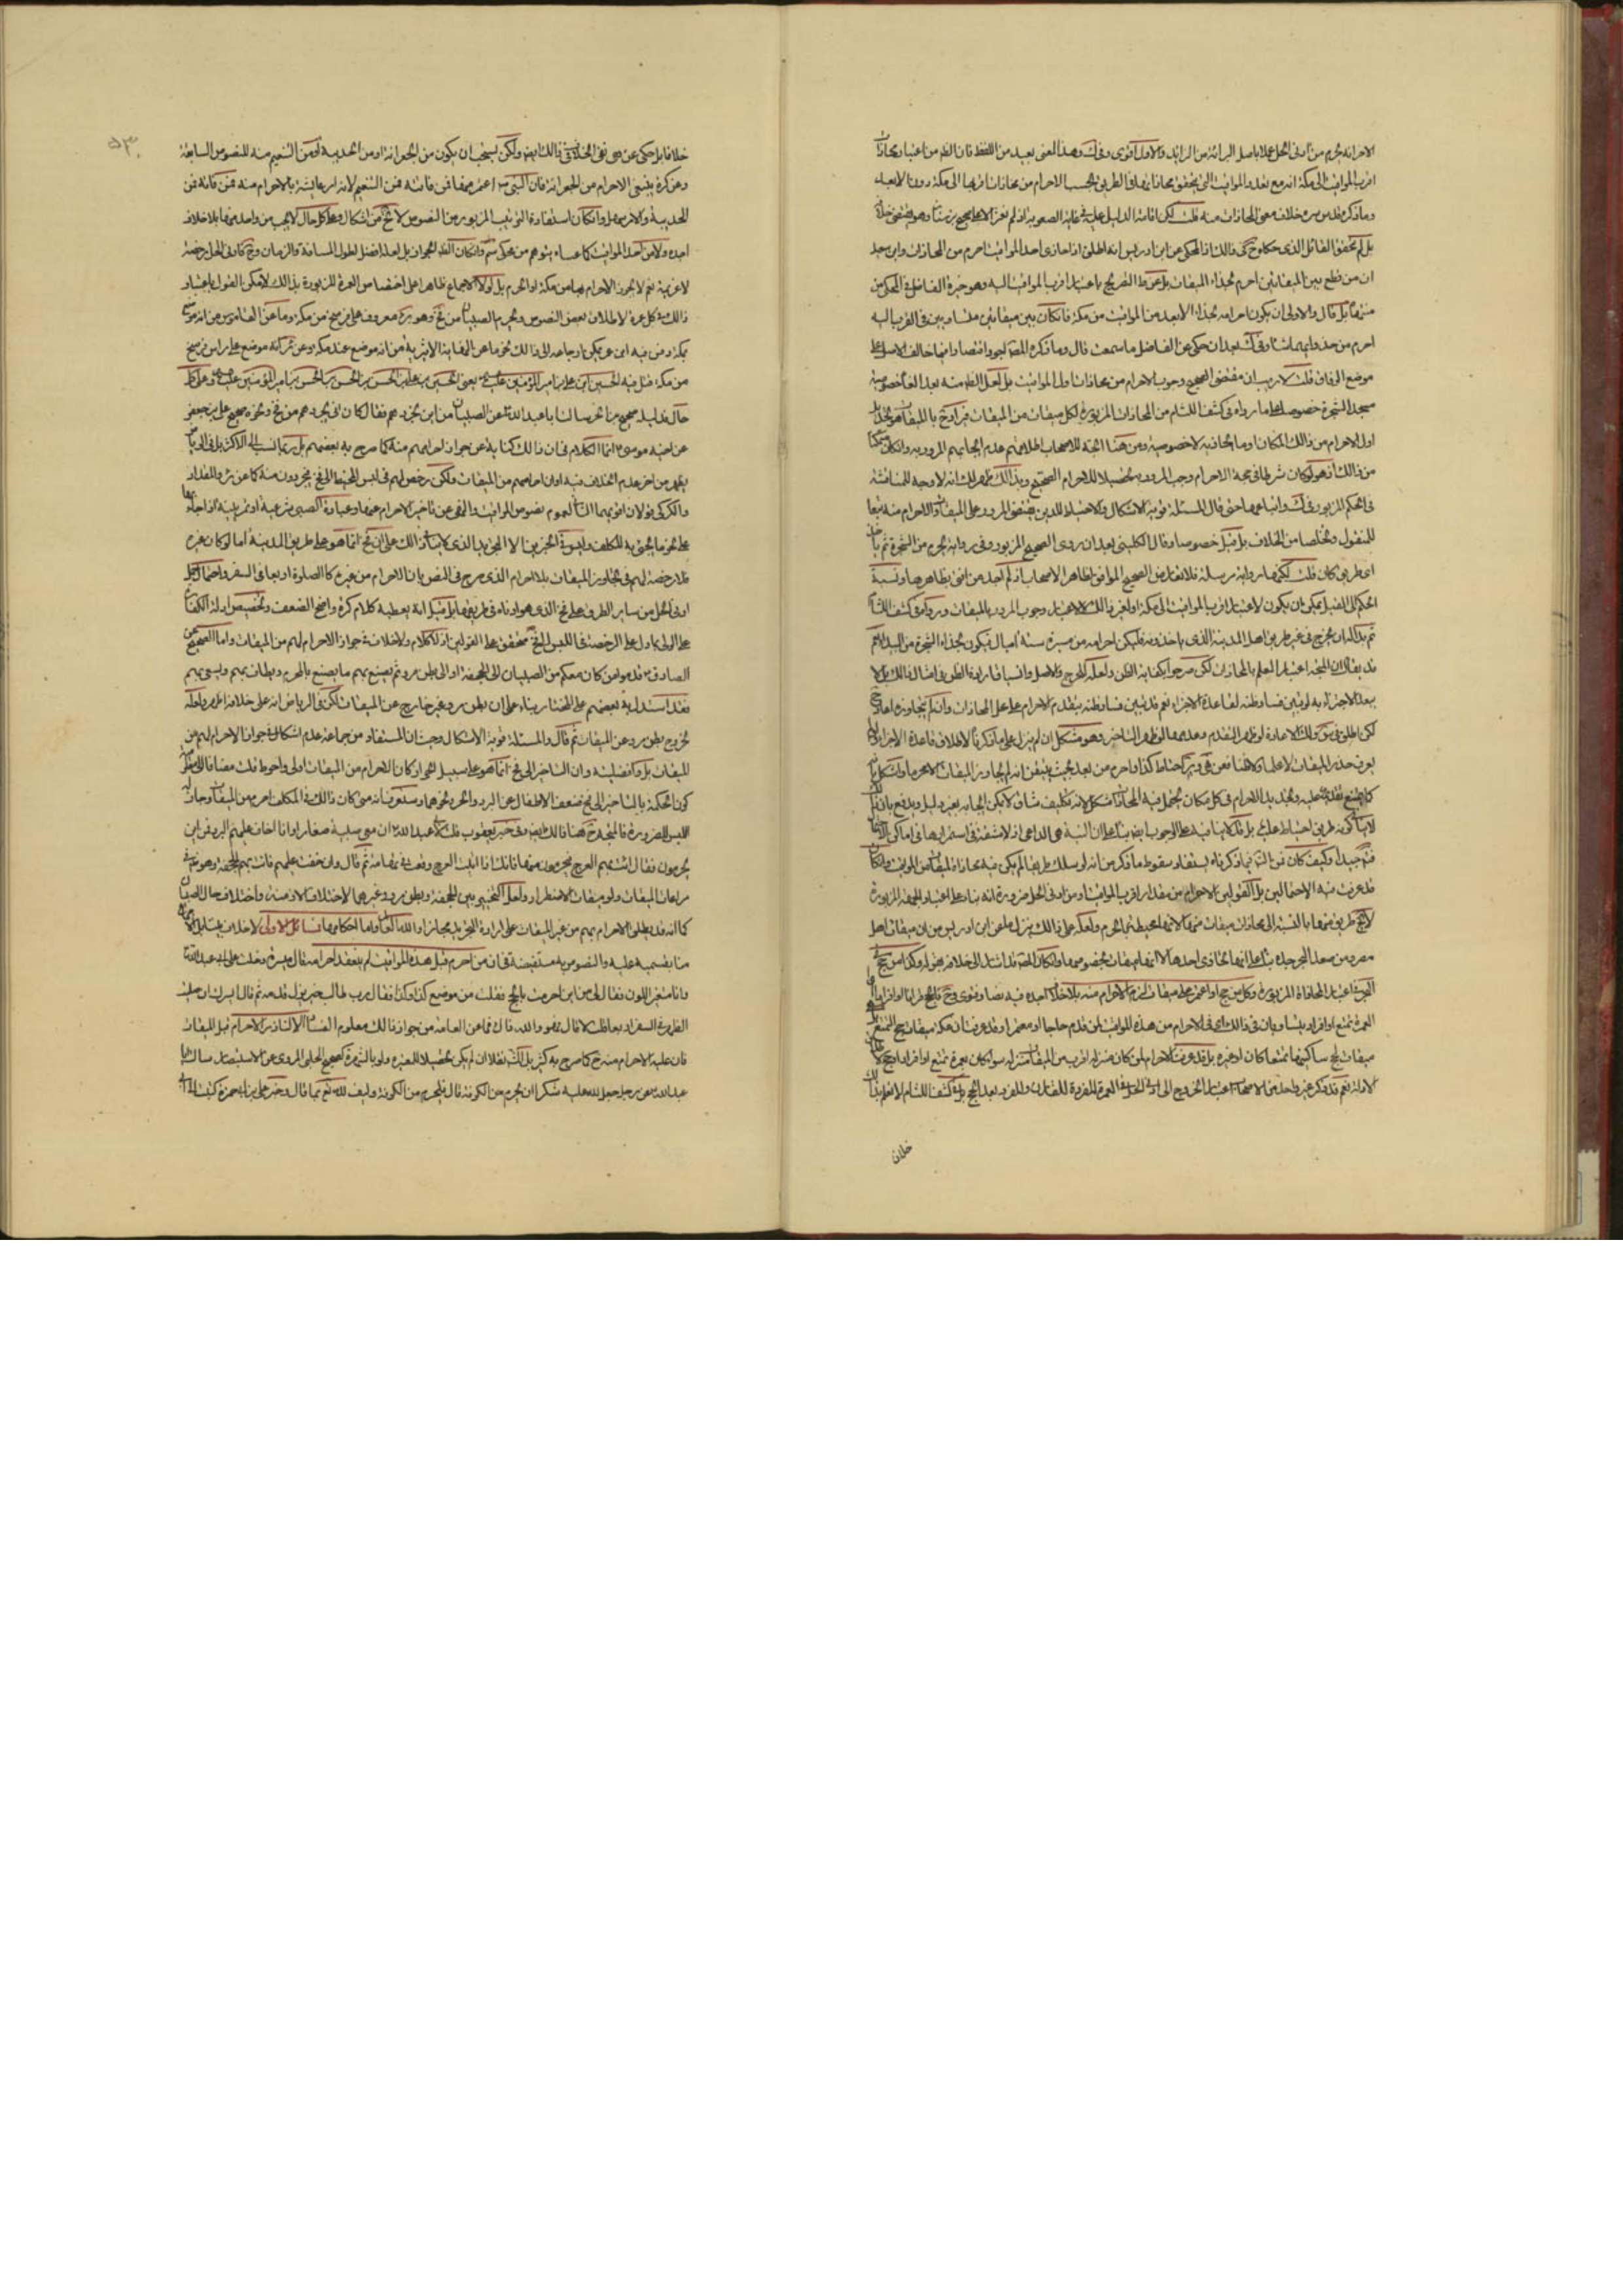 الاحرام انه يحرم من أدنى الحل عملا باصل البرائة من الزائد والاول أقوى وفى ك وهذا المعنى بعيد من اللفظ فان الظ من اعتبار محاذات
اقرب المواقيت الى مكة انه مع تعدد المواقيت التى يتحقق محاذاتها فى الطريق يحسب الاحرام من محاذات اقربها الى مكة دون الابعد
وما ذكره قدس سره خلاف معنى المحاذات منه قلت لكن اقامة الدليل عليه فى غاية الصعوبة اذ لم نعثر الا على صحيح بن سنان وهو يقتضى خلافه
بل لم نتحقق القائل الذى حكاه ح فى ذالك اذ المحكى عن ابن ادريس انه اطلق اذا حاذى احد المواقيت احرم من المحاذات وابن سعيد
ان من قطع بين الميقاتين احرم بحذاء الميقات بل عن ط التصريح باعتبار اقرب المواقيت اليه وهو خيرة الفاضل فى المحكى من
منتهاه بل قال والاولى ان يكون احرامه بحذاء الابعد من المواقيت من مكة فان كان بين ميقاتين متساويين فى القرب اليه
احرم من حذو ايهما شاء وفى ك بعد ان حكى عن الفاضل ما سمعت قال وما ذكره المص اجود اقتصارا فيما خالف الاصل على
موضع الوفاق قلت لا ريب ان مقتضى الصحيح وجوب الاحرام من محاذات اول المواقيت بل لعل الظ منه بعد الغاء خصوصية
مسجد الشجرة خصوصا على ما رواه فى كشف اللثام من المحاذات المزبورة لكل ميقات من الميقات
اول الاحرام من ذالك المكان وما يحاذيه لا خصوصية ومن هنا اتجه للاصحاب اطلاقهم عدم ايجابهم المرور به وان كان متمكنا
من ذالك اذ هو لو كان شرطا فى صحة الاحرام وجب المرور به تحصيلا للاحرام الصحيح وبذالك ظهر لك انه لا وجه للمناقشة
فى الحكم المزبور فى ك واتباعها حتى قال المسئلة قوية الاشكال والاحتياط للدين يقتضى المرور على الميقات والاحرام منه تبعا
للمنقول وتخلصا من الخلاف بل قبل خصوصا وقال الكلينى بعد ان روى الصحيح المزبور وفى رواية يحرم من الشجرة ثم ياخذ
اى طريق كان قلت لكنها رواية مرسلة فلا تعارض الصحيح الموافق لظاهر الاصحاب اذ لم اجد من افتى بظاهرها ونسبة
الحكم الى القيل يمكن ان يكون لاعتبار اقرب المواقيت الى مكة او لغير ذالك لا لاعتبار وجوب المرور بالميقات ورد كما فى كشف اللثام
ثم بدا له ان يخرج فى غير طريق اهل المدينة الذى ياخذونه فليكن احرامه من مسيرة ستة اميال فيكون حذاء الشجرة من البيداء ثم
قد يقال ان المتجه اعتبار العلم بالمحاذات لكن صرحوا بكفاية الظن ولعله للحرج والاصل وانسياق ارادة الظن فى امثال ذالك بل لا
يبعد الاجتزاء به لو تبين فساد ظنه لقاعدة الاجزاء نعم قد تبين فساد ظنه بتقدم الاحرام على محل المحاذات وان لم يتجاوزه اعاد ح
لكن اطلق فى س وك الاعادة لو ظهر التقدم وعدمها لو ظهر التاخير وهو مشكل ان لم ينزل على ما ذكرنا لاطلاق قاعدة الاجزاء
يعرف حذو الميقات الا علما ولا ظنا فعن ى وير احتاط كذا واحرم من بعد بحيث يتيقن انه لم يجاوز الميقات الا محرما واشكل
كما يمتنع تقديمه عليه وتجديد الاحرام فى كل مكان يحتمل فيه المحاذات مشكل لانه تكليف شاق لا يمكن ايجابه بغير دليل ويدفع بان
فتم جيدا وكيف كان فمن التامل فيما ذكرناه يستفاد سقوط ما ذكر من انه لو سلك طريقا لم يكن فيه محاذاة لميقات من المواقيت وان كان
قد عرفت فيه الاحتمالين بل القولين الاحرام من مقدار اقرب المواقيت او من ادنى الحل ضرورة انه بناء على اعتبار الجهة المزبورة
لا يخ طريق منها بالنسبة الى محاذات ميقات منها لانها محيطة بالحرم ولعله على ذالك ينزل ما عن ابن ادريس من ان ميقات اهل
مصر ومن صعد البحر جدة بناء على انها تحاذى احدها لا انها ميقات بخصوصها وان كان المص قد اشار الى خلافه بقوله وكذا من حج
البحر اعتبار المحاذاة المزبورة وكل من حج او اعتمر على ميقات لزمه الاحرام منه بلا خلاف اجده فيه نصا وفتوى
العمرة تمتع او افراد بينا وبان فى ذالك اى فى الاحرام من هذه المواقيت لمن قدم حاجا او معتمرا وقد عرفت ان مكة ميقات حج التمتع
ميقات حج ساكنها متمتعا كان او غيره بل قد عرفت الاحرام لمن كان منزله اقرب من الميقات منزله سواء كان بعمرة تمتع او افراد او حج
الادلة نعم قد ذكر غير واحد من الاصحاب اعتبار الخروج الى ادنى الحل فى العمرة المفردة للقارن والمفرد بعد الحج بل فى كشف اللثام لا نعلم فى ذالك
خلافا
خلافا بل حكى عن هى نفى الخلاف فى ذالك ايضا ولكن يستحب ان يكون من الجعرانة او من الحديبية او من التنعيم منه للنصوص السابقة
وعن كرة ينبغى الاحرام من الجعرانة فان النبى ص اعتمر منها فان فاتته فمن التنعيم لانه امر عايشة بالاحرام منه فمن فاتته فمن
الحديبية والامر سهل وان كان استفادة الترتيب المزبور من النصوص لا تخ من اشكال وعلى كل حال لا يجب من واحد منها بلا خلاف
اجده ولا من احد المواقيت كما عساه يتوهم من محكى سم وان كان الظ الجواز بل لعله افضل لطول المسافة والزمان وح فادنى الحل رخصة
لا عزيمة نعم لا يجوز الاحرام بها من مكة او الحرم بل لولا الاجماع ظاهرا على اختصاص العمرة المزبورة بذالك لامكن القول باعتبار
ذالك فى كل عمرة لاطلاق بعض النصوص ويجرد الصبيان من فخ وهو بئر معروف على فرسخ من مكة وما عن القاموس من انه موضع
بمكة دفن فيه ابن عمر يمكن ارجاعه الى ذالك نحو ما عن النهاية الاثيرية من انه موضع عند مكة وعن ئر انه موضع على راس فرسخ
من مكة قتل فيه الحسين ابن على بن امير المؤمنين عليه السلام يعنى الحسين بن على بن الحسن بن الحسن بن الحسن بن امير المؤمنين عليه السلام وعلى كل
حال فدليله صحيح بن الحر سالت ابا عبد الله ع عن الصبيان من اين نجردهم فقال كان ابى يجردهم من فخ ونحوه صحيح على بن جعفر
عن اخيه موسى ع انما الكلام فى ان ذالك كناية عن جواز احرامهم منه كما صرح به بعضهم بل ربما نسب الى الاكثر بل فى الرياض
يظهر من اخر عدم الخلاف فيه او ان احرامهم من الميقات ولكن رخص لهم فى لبس المخيط الى فخ فيجردون منه كما عن ئر والمقداد
والكركى قولان اقويهما الثانى لعموم نصوص المواقيت والنهى عن تاخير الاحرام عنها وعبادة الصبى شرعية او تمرينية
على نحو ما يجئ به المكلف وليس فى الخبرين الا التجريد الذى لا ينافى ذالك على ان فخ انما هو على طريق المدينة اما لو كان غيره
فلا رخصة لهم فى تجاوز الميقات بلا احرام الذى صرح فى النص بان الاحرام من غيره كالصلوة اربعا فى السفر واحتمال الحمل
ادنى الحل من ساير الطرق على فخ الذى هو ادناه فى طريقها بل قيل انه يعطيه كلام كرة واضح الضعف وتخصيص ادلة الكفارات
على الولى بما دل على الرخصة فى اللبس الى فخ متحقق على القولين اذ لا كلام ولا خلاف فى جواز الاحرام لهم من الميقات واما الصحيح عن
الصادق ع قدموا من كان معكم من الصبيان الى الجحفة او الى بطن مرو ثم يصنع بهم ما يصنع بالمحرم ويطاف بهم ويسعى بهم
فقد استدل به بعضهم على المختار بناء على ان بطن مرو غير خارج عن الميقات لكن فى الرياض انه على خلافه اظهر ولعله
لخروج بطن مرو عن الميقات ثم قال والمسئلة قوية الاشكال وحيث ان المستفاد من جماعة عدم اشكال فى جواز الاحرام لهم من
الميقات بل وافضليته وان التاخير الى فخ انما هو على سبيل الجواز كان الاحرام من الميقات اولى واحوط قلت مضافا الى ظهور
كون الحكمة بالتاخير الى فخ ضعف الاطفال عن البرد والحر ونحوهما وستعرف انه متى كان ذالك فى المكلف احرم من الميقات وجاز له
اللبس للضرورة فالمتجه ح هنا ذالك ايضا وفى خبر يعقوب قلت لابى عبد الله ع ان معى صبية صغارا وانا اخاف عليهم البرد فمن اين
يحرمون فقال ائت بهم العرج فليحرموا منها فانك اذا اتيت العرج وقعت فى تهامة ثم قال وان خفت عليهم فات بهم الجحفة وهو مشعر
مراعات الميقات ولو ميقات الاضطرار ولعل التخيير بين الجحفة وبطن مرو وغيرهما لاختلاف الازمنة واختلاف حال الصبيان
كما انه قد يطلق الاحرام بهم من غير الميقات على ارادة التجريد مجازا والله العالم واما احكامها فمسائل الاولى لا خلاف
منا بقسميه عليه والنصوص به مستفيضة فى ان من احرم قبل هذه المواقيت لم ينعقد احرامه قال ميسرة دخلت على ابى عبد الله ع
وانا متغير اللون فقال لى من اين احرمت بالحج فقلت من موضع كذا وكذا فقال رب طالب خير يزل قدمه ثم قال ايسرك ان صليت
الظهر فى السفر اربعا قلت لا قال فهو والله ذاك فما عن العامة من جواز ذالك معلوم الفساد الا لناذر الاحرام قبل الميقات
فان عليه الاحرام منه ح كما صرح به كثير بل لك نقلا ان لم يكن تحصيلا للمعتبرة ولو بالشهرة كصحيح الحلبى المروى عن الاستبصار سالت ابا
عبد الله ع عن رجل جعل لله عليه شكرا ان يحرم من الكوفة قال فليحرم من الكوفة وليف لله تع بما قال وخبر على بن ابى حمزة كتبت الى ابى